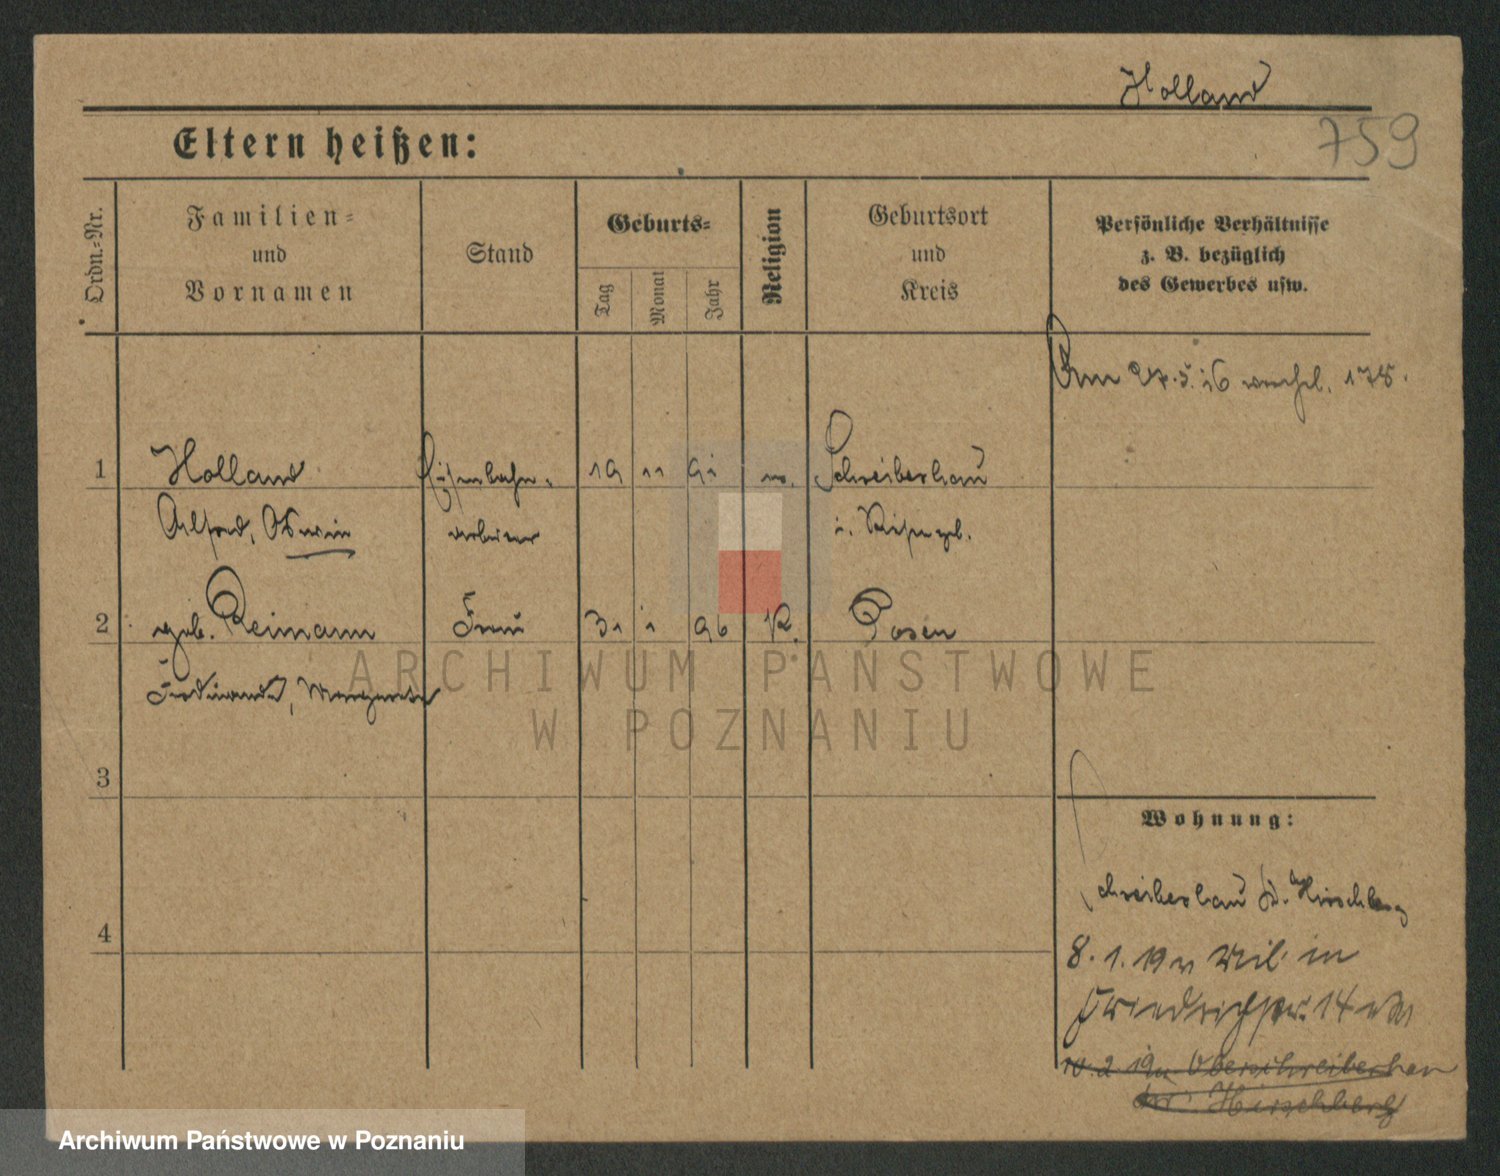 Holland
759
Eltern heißen:
Ordn.-Nr.
Familien-
und
Vornamen
Stand
Geburts-
Tag
Monat
Jahr
Religion
Geburtsort
und
Kreis
Persönliche Verhältnisse
z. B. bezüglich
des Gewerbes usw.
Am 27.5.16
1 Holland Eisenbahn- 19 11 91 Schreiberhau
Alfred, Oswin arbeiter i. Riesengeb.
2 geb. Reimann Frau 31 1 96 K. Posen
Ferdinande, Margarete
3
4
Wohnung:
Schreiberhau Kr. Hirschberg
8. 1. 19 v Mil. in
Friedrichstr. 14
10.2.19 n. Oberschreiberhau
Kr. Hirschberg
ARCHIWUM PAŃSTWOWE
W POZNANIU
Archiwum Państwowe w Poznaniu